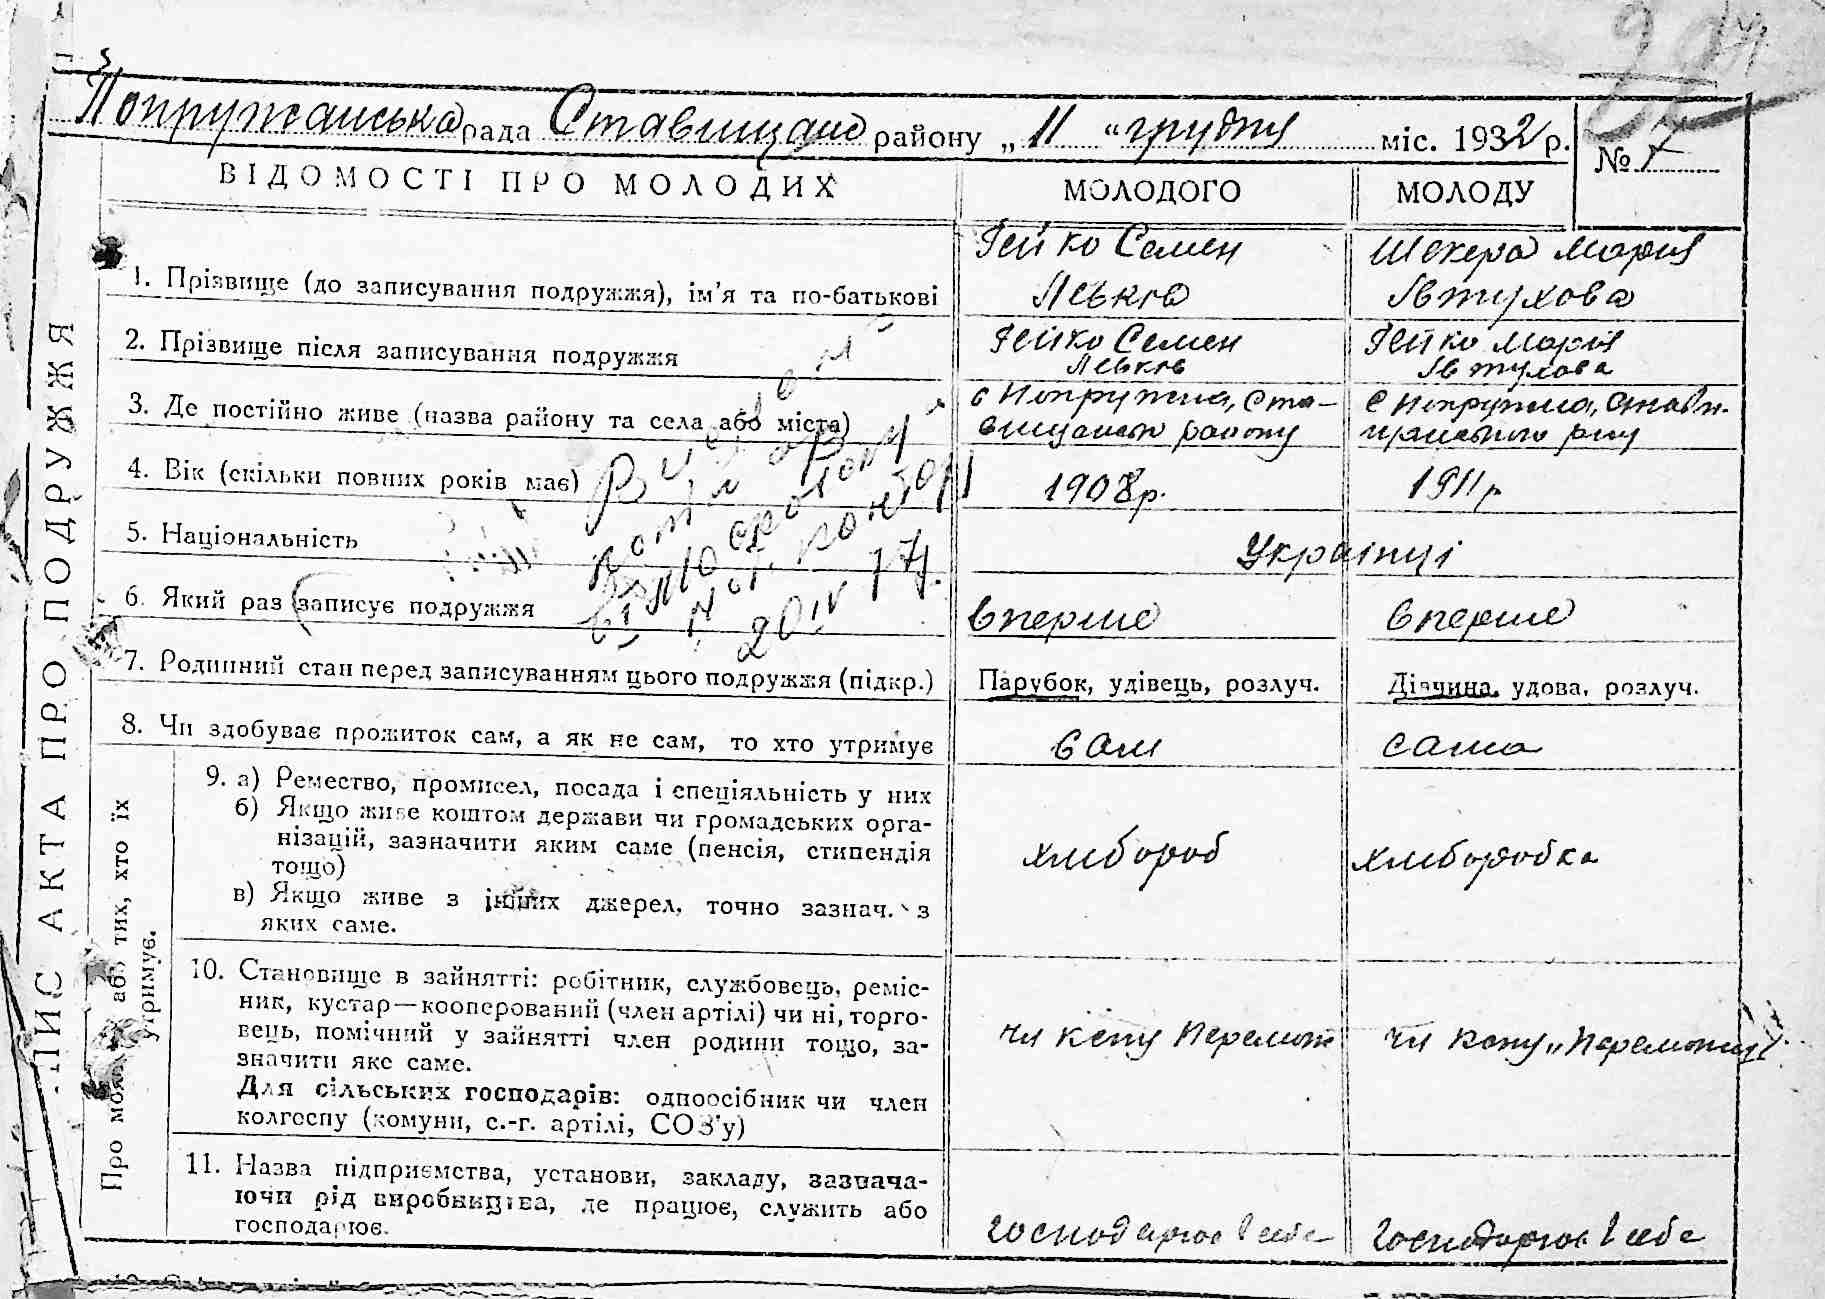 Попружанська рада Ставищанс району „ 11 “ грудня міс. 1932 р.
№ 7
ВІДОМОСТІ ПРО МОЛОДИХ
МОЛОДОГО
МОЛОДУ
1. Прізвище (до записування подружжя), ім’я та по-батькові
Гейко Семен
Леьків
Шекера Марія
Івтухова
2. Прізвище після записування подружжя
Гейко Семен
Леьків
Гейко Марія
Івтухова
3. Де постійно живе (назва району та села або міста)
с Попружна, Ста-
вищанськ району
с Попружна, Стави-
щанського рну
4. Вік (скільки повних років має)
1908р.
1911р
5. Національність
Українці
6. Який раз записує подружжя
вперше
вперше
20 IV 17
7. Родинний стан перед записуванням цього подружжя (підкр.)
Парубок, удівець, розлуч.
Дівчина, удова, розлуч.
8. Чи здобуває прожиток сам, а як не сам, то хто утримує
сам
сама
9. а) Ремество, промисел, посада і спеціяльність у них
б) Якщо живе коштом держави чи громадських орга-
нізацій, зазначити яким саме (пенсія, стипендія
тощо)
в) Якщо живе з інших джерел, точно зазнач. з
яких саме.
хлібороб
хліборобка
10. Становище в зайнятті: робітник, службовець, реміс-
ник, кустар—кооперований (член артілі) чи ні, торго-
вець, помічний у зайнятті член родини тощо, за-
значити яке саме.
Для сільських господарів: одноосібник чи член
колгоспу (комуни, с.-г. артілі, СОЗ’у)
чл
чл
11. Назва підприємства, установи, закладу, зазнача-
ючи рід виробництва, де працює, служить або
господарює.
господарює в себе
господарює в себе
ПИС АКТА ПРО ПОДРУЖЖЯ
Про або тих, хто їх
утримує.